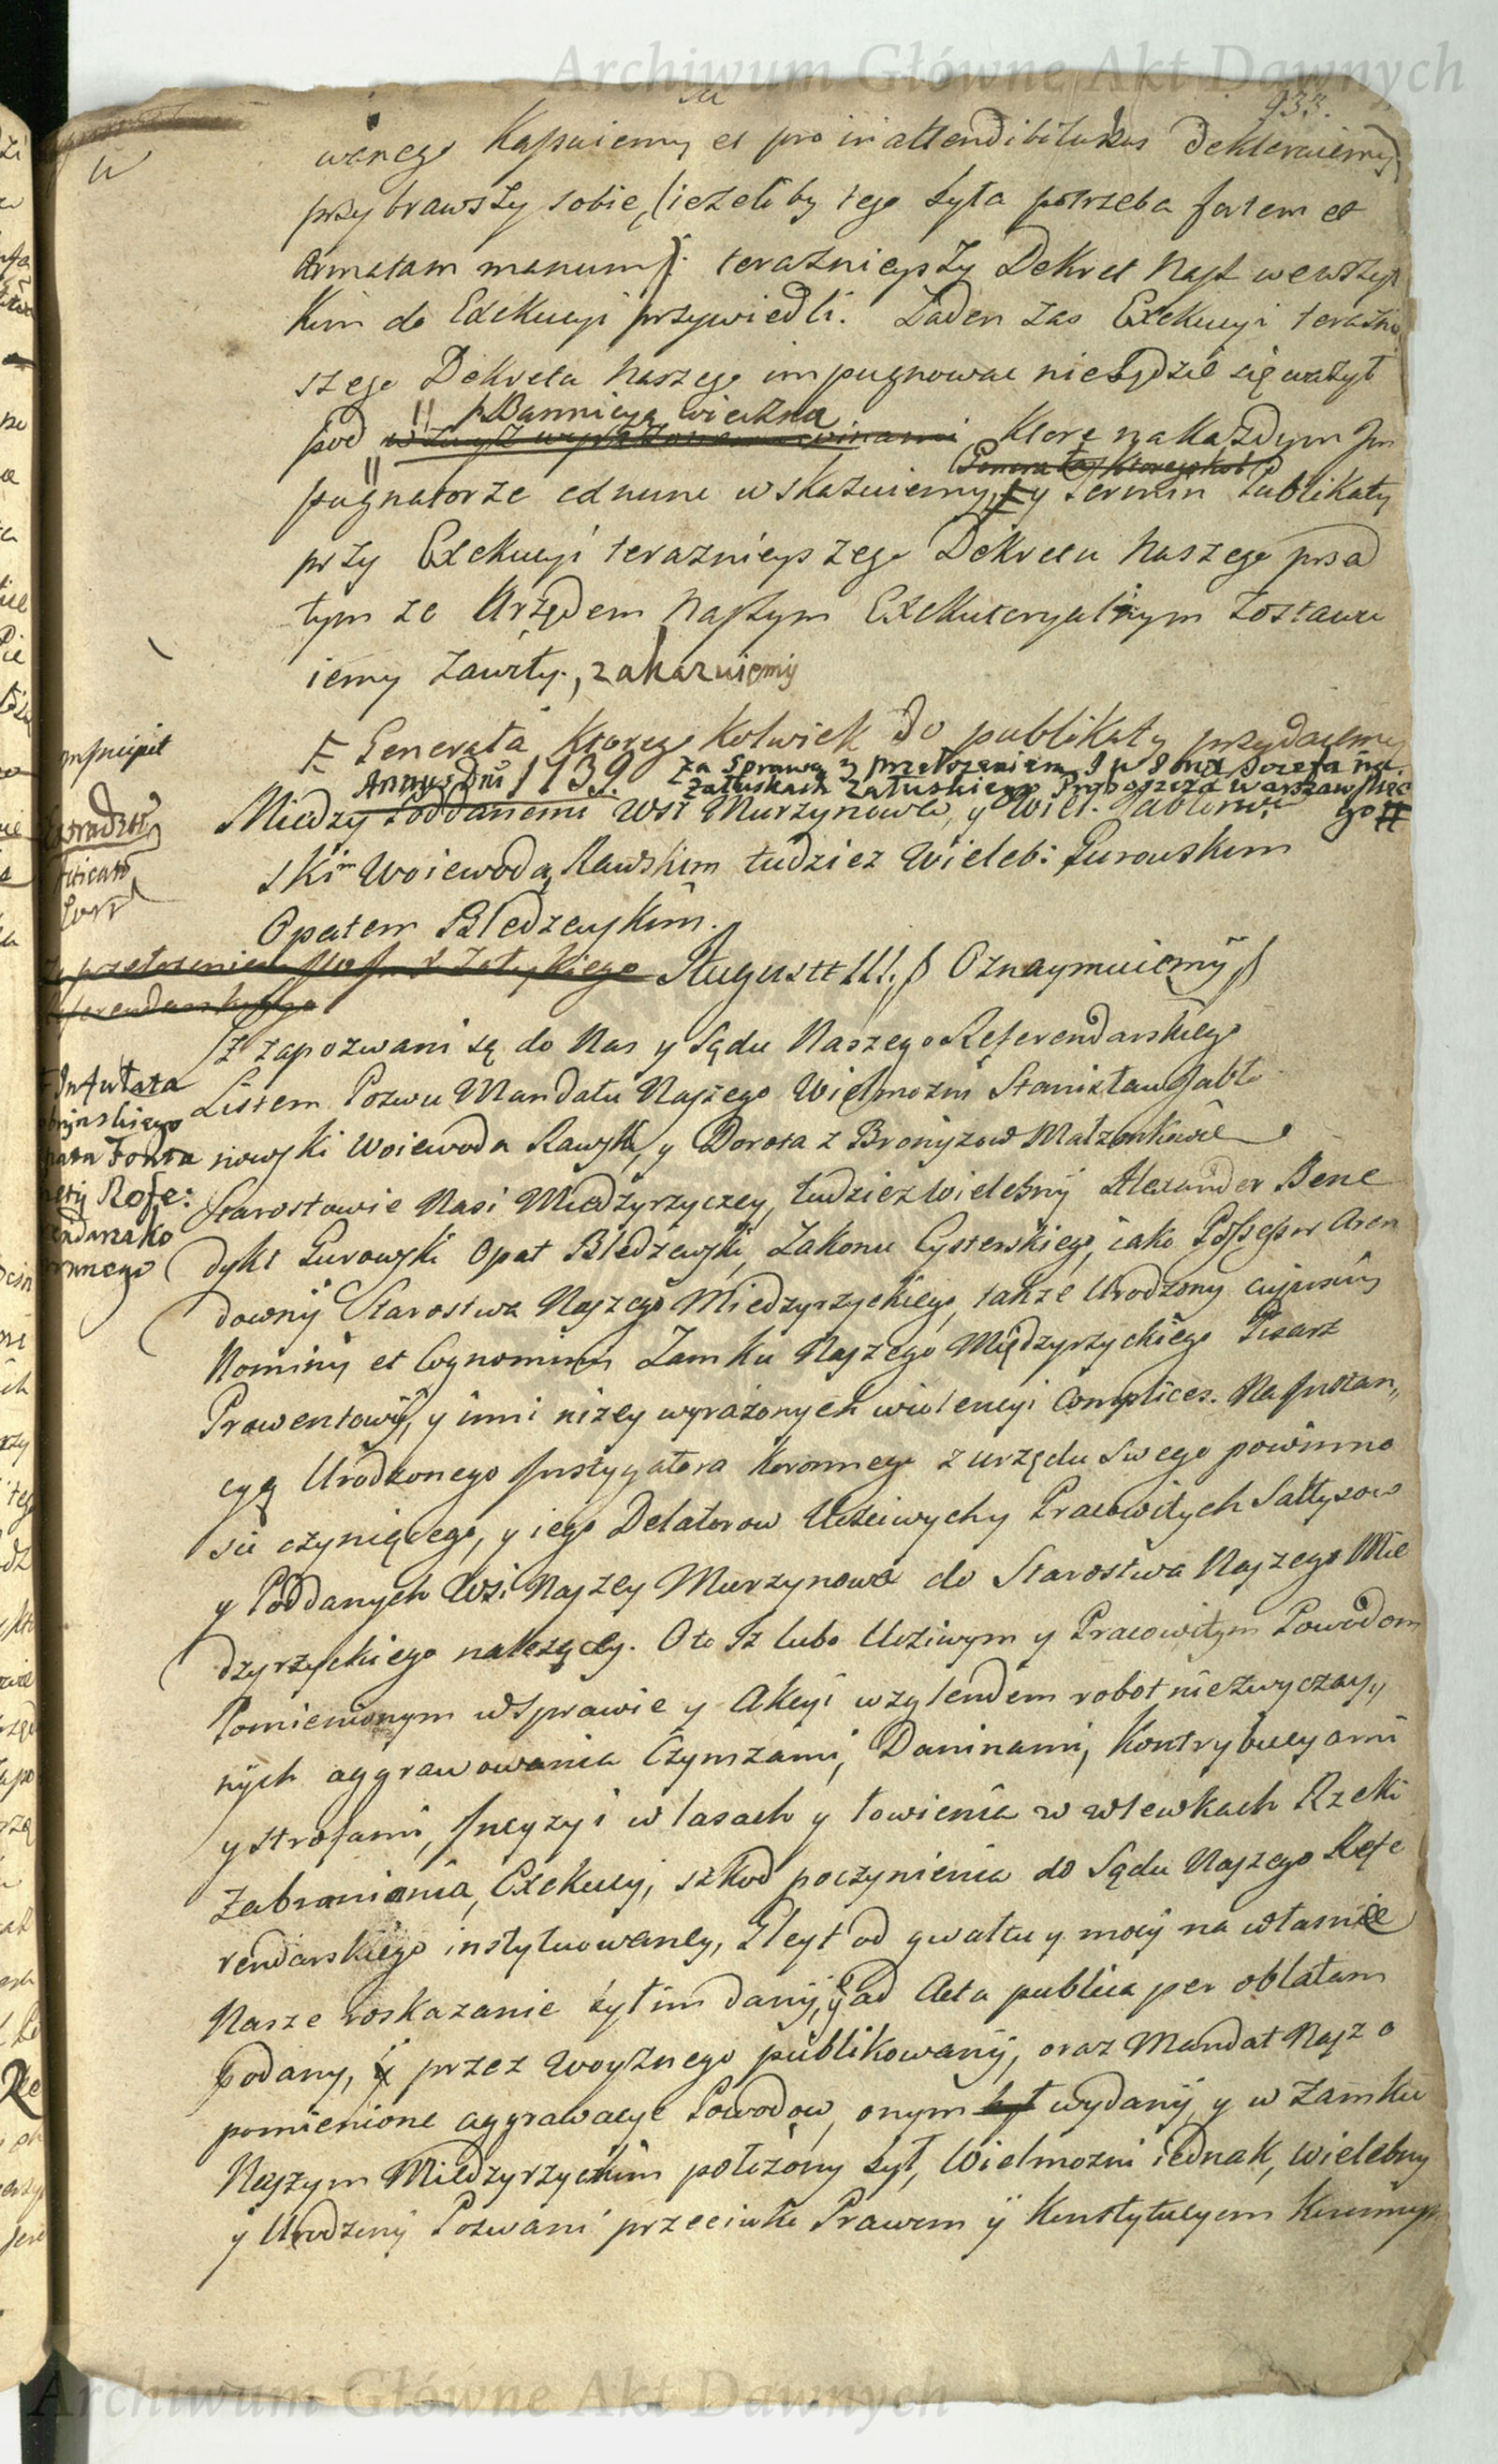 Archiwum Główne Akt Dawnych
933.
wanego Kassuiemy et pro inattendibilibus deklaruiemy
przybrawszy sobie, (ieżeliby tego była potrzeba fortem et
Armatam manum). teraznieyszy Dekret Nasz wewszyst
kim do Exekucyi przywiedli. Żaden zas Exekucyi teraźniey
szego Dekretu Naszego impugnować niebędzie się ważył
p. Bannicyą wieczną
pod którą na każdym Im
pugnatorze ednunc wskazuiemy, y termin Publikaty
przy Exekucyi teraznieyszego Dekretu Naszego przed
tym ze Urzędem Naszym Exekutoryalnym zostawu
iemy zawity, zakazuiemy
Generała ktoregokolwiek do publikaty przydaiemy
inscripsit
Anno Dni 1739. Za Sprawą y przełożeniem J W J Mci Jozefa na
Załuskach Załuskiego Proboszcza Warszawskie
go #
Miedzy Poddanemi Wsi Murzynowa, y Wiel. Jabłonow
skim Woiewodą Rawskim tudziez Wieleb: Gurowskim
Opatem Bledzewskim.
Extradit
August III. Oznaymuiemy
Iz zapozwani są do Nas y Sądu Naszego Referendarskiego
Listem Pozwu Mandatu Naszego Wielmozni Stanisław Jabło
nowski Woiewoda Rawski, y Dorota z Broniszow Małzonkowie
Infułata
Refe:
Starostowie Nasi Miedzyrzyczcy, tudziez Wielebny Alexander Bene
dykt Gurowski Opat Bledzewski, Zakonu Cysterskiego, iako Possessor Aren
downy Starostwa Naszego Miedzyrzyckiego, także Urodzony cujusvis
Nominis et Cognominis Zamku Naszego Międzyrzyckiego Pisarz
Prowentowy, y inni niżey wyrażonych wiolencyi Complices. Na Instan,,
cyą Urodzonego Instygatora Koronnego z urzędu swego powinno
sci czyniącego, y iego Delatorow Uczciwych y Pracowitych Sałtysow
y Poddanych Wsi Naszey Murzynowa do Starostwa Naszego Mie
dzyrzyckiego należącey. Oto Iz lubo Uczciwym y Pracowitym Powodom
Pomienionym w Sprawie y Akcyi względem robot niezwyczay,,
nych aggrawowania Czynszami, Daninami, Kontrybucyami
y strofami, Incyzyi w lasach y łowienia w wlewkach Rzeki
Zabronienia, Exekucyi, szkod poczynienia do Sądu Naszego Refe
rendarskiego instytuowaney, Gleyt od gwałtu y mocy na własne
Nasze roskazanie był im dany, y ad Acta publica per oblatam
podany, y przez Woyznego publikowany, oraz Mandat Nasz o
pomienione aggrawacye Powodow, onym wydany y w Zamku
Naszym Miedzyrzyckim położony był, Wielmozni iednak, Wielebny
y Urodzony Pozwani przeciwko Prawom y Konstytucyom
Archiwum Główne Akt Dawnych